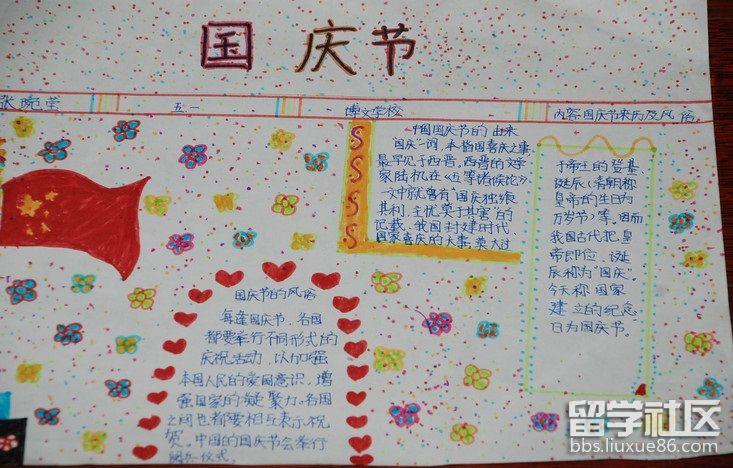 国 庆 节
张婉莹
五一
博文学校
内容:国庆节来历及风俗
中国国庆节的由来
"国庆"一词,本指国喜庆之事
最早见于西晋,西晋的文学
家陆机在《五等诸侯论》
一文中就曾有"国庆独飨
其利,主忧莫于其害"的
记载、我国封建时代、
国家喜庆的大事,莫大过
于帝王的登基、
诞辰、(清朝称
皇帝的生日为
万岁节)等,因而
我国古代把皇
帝即位、诞
辰称为"国庆"。
今天称国家
建立的纪念
日为国庆节。
国庆节的风俗
每逢国庆节、各国
都要举行不同形式的
庆祝活动,以加强
本国人民的爱国意识,增
强国家的凝聚力。各国
之间也都要相互表示祝
贺。中国的国庆节会举行
阅兵仪式。
留学社区
bbs.liuxue86.com